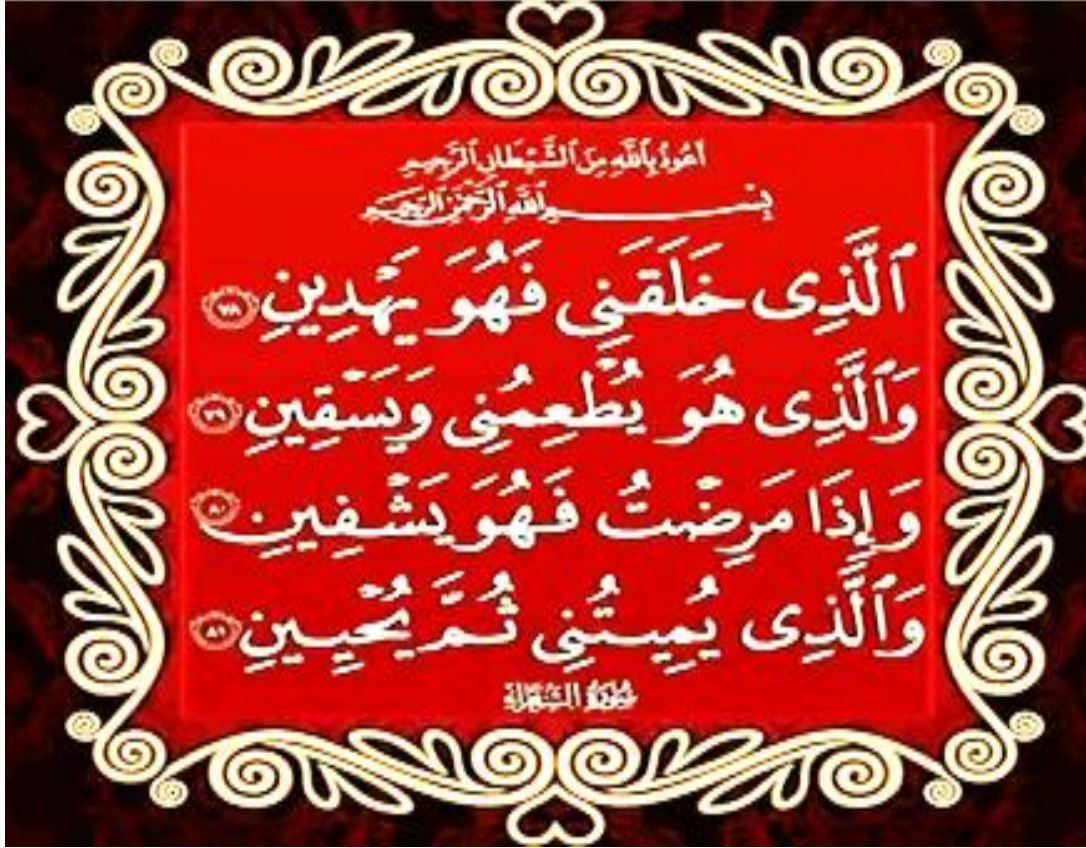 أَعُوذُ بِٱللَّهِ مِنَ ٱلشَّيْطَانِ ٱلرَّجِيمِ
بِسْمِ ٱللَّهِ ٱلرَّحْمَٰنِ ٱلرَّحِيمِ
ٱلَّذِى خَلَقَنِى فَهُوَ يَهْدِينِ ٧٨
وَٱلَّذِى هُوَ يُطْعِمُنِى وَيَسْقِينِ ٧٩
وَإِذَا مَرِضْتُ فَهُوَ يَشْفِينِ ٨٠
وَٱلَّذِى يُمِيتُنِى ثُمَّ يُحْيِينِ ٨١
سُورَةُ الشُّعَرَاءِ